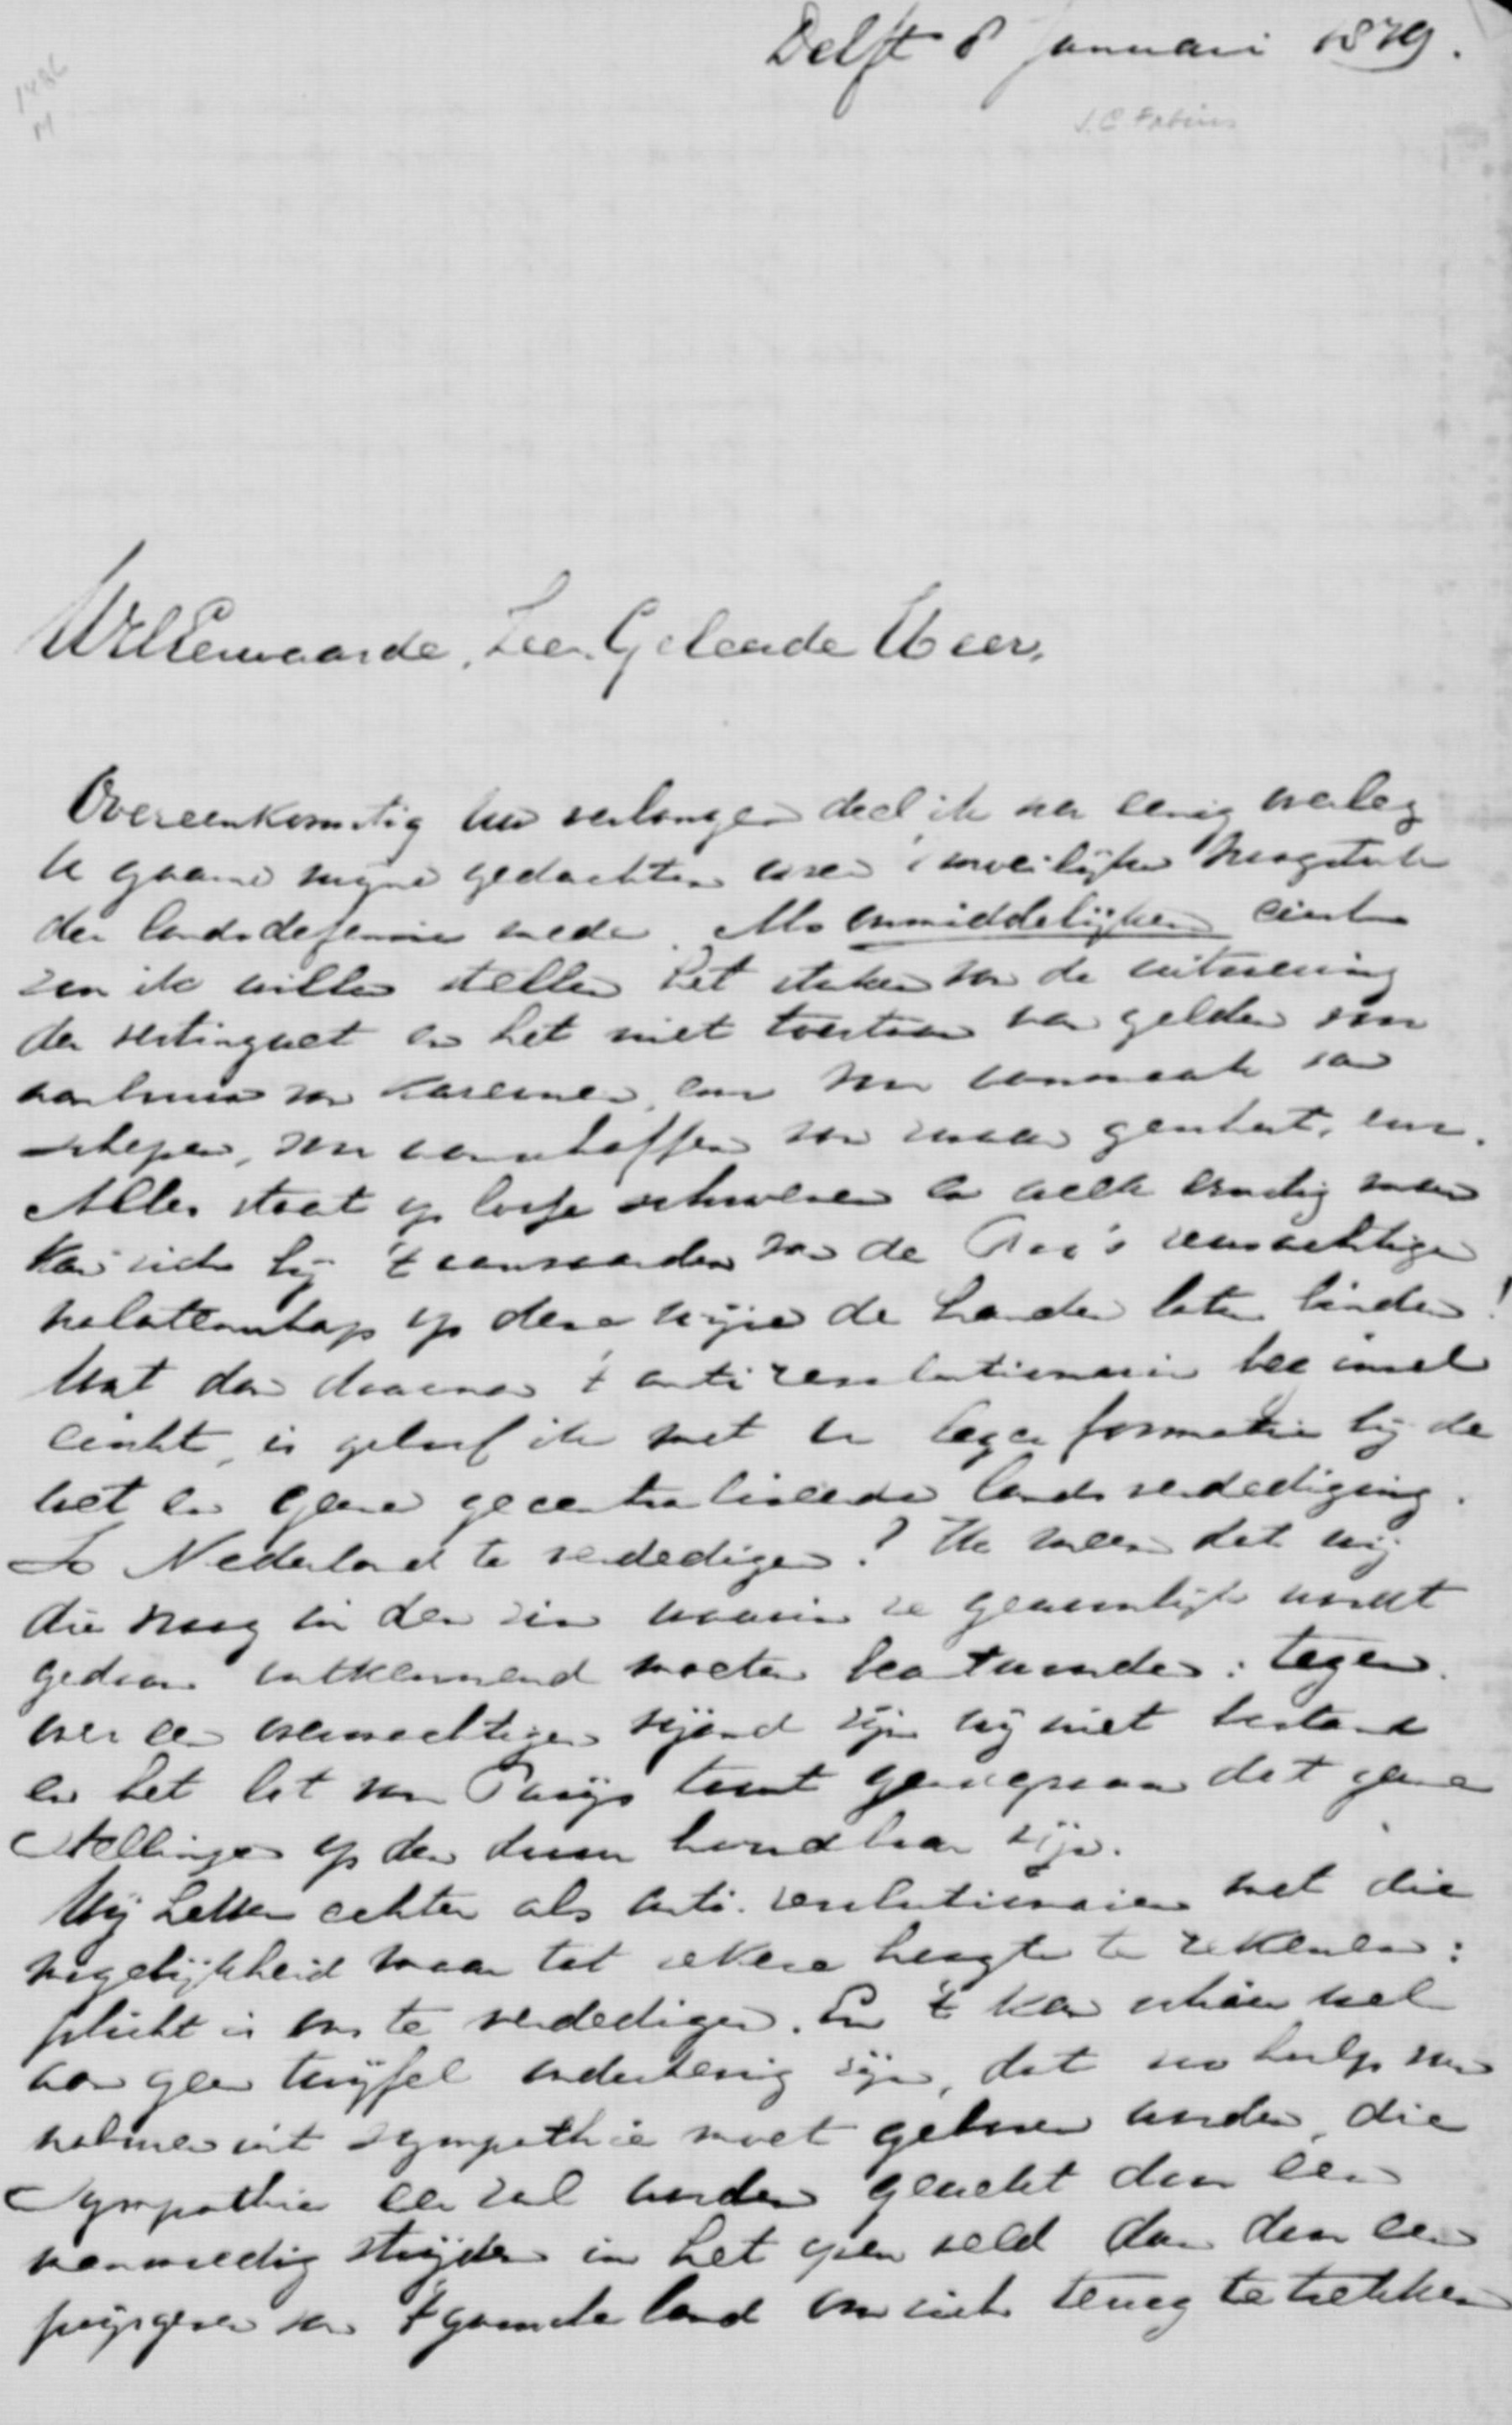 Delft 8 Januari 1879.
J.C Fabius
1486
M
WelEerwaarde, Zeer Geleerde Heer,
Overeenkomstig uw verlangen deel ik na eenig overleg
U gaarne mijne gedachten over 't moeilijke vraagstuk
der landsdefensie mede. Als onmiddelijken eisch
zou ik willen stellen het staken van de uitvoering
der vestingwet en het niet toestaan van gelden voor
aanbouw van kazernes, voor aanmaak van
schepen, voor aanschaffen van zwaar geschut, enz.
Alles staat op losse schroeven en welk ernstig man
kan zich bij 't aanvaarden van de Roo's
nalatenschap op deze wijze de handen laten binden!
Wat dan daarna 't antirevolutionair beginsel
eischt, is geloof ik met U leger formatie bij de
wet en geen gecentraliseerde landsverdediging.
Is Nederland te verdedigen? Ik meen dat wij
die vraag in den zin waarin ze gewoonlijk wordt
gedaan ontkennend moeten beantwoorden: tegen
over een overmachtigen vijand zijn wij niet bestand
en het lot van Parijs toont genoegzaam dat geene
stellingen op den duur houdbaar zijn.
Wij hebben echter als anti-revolutionairen met die
mogelijkheid maar tot zekere hoogte te rekenen:
plicht is ons te verdedigen. En 't kan schier wel
aan geen twijfel onderhevig zijn, dat zoo hulp van
uit sympathie moet geboren worden, die
sympathie eer zal worden gewekt door een
manmoedig strijden in het open veld dan door een
prijsgeven van 't gansche land om zich terug te trekken